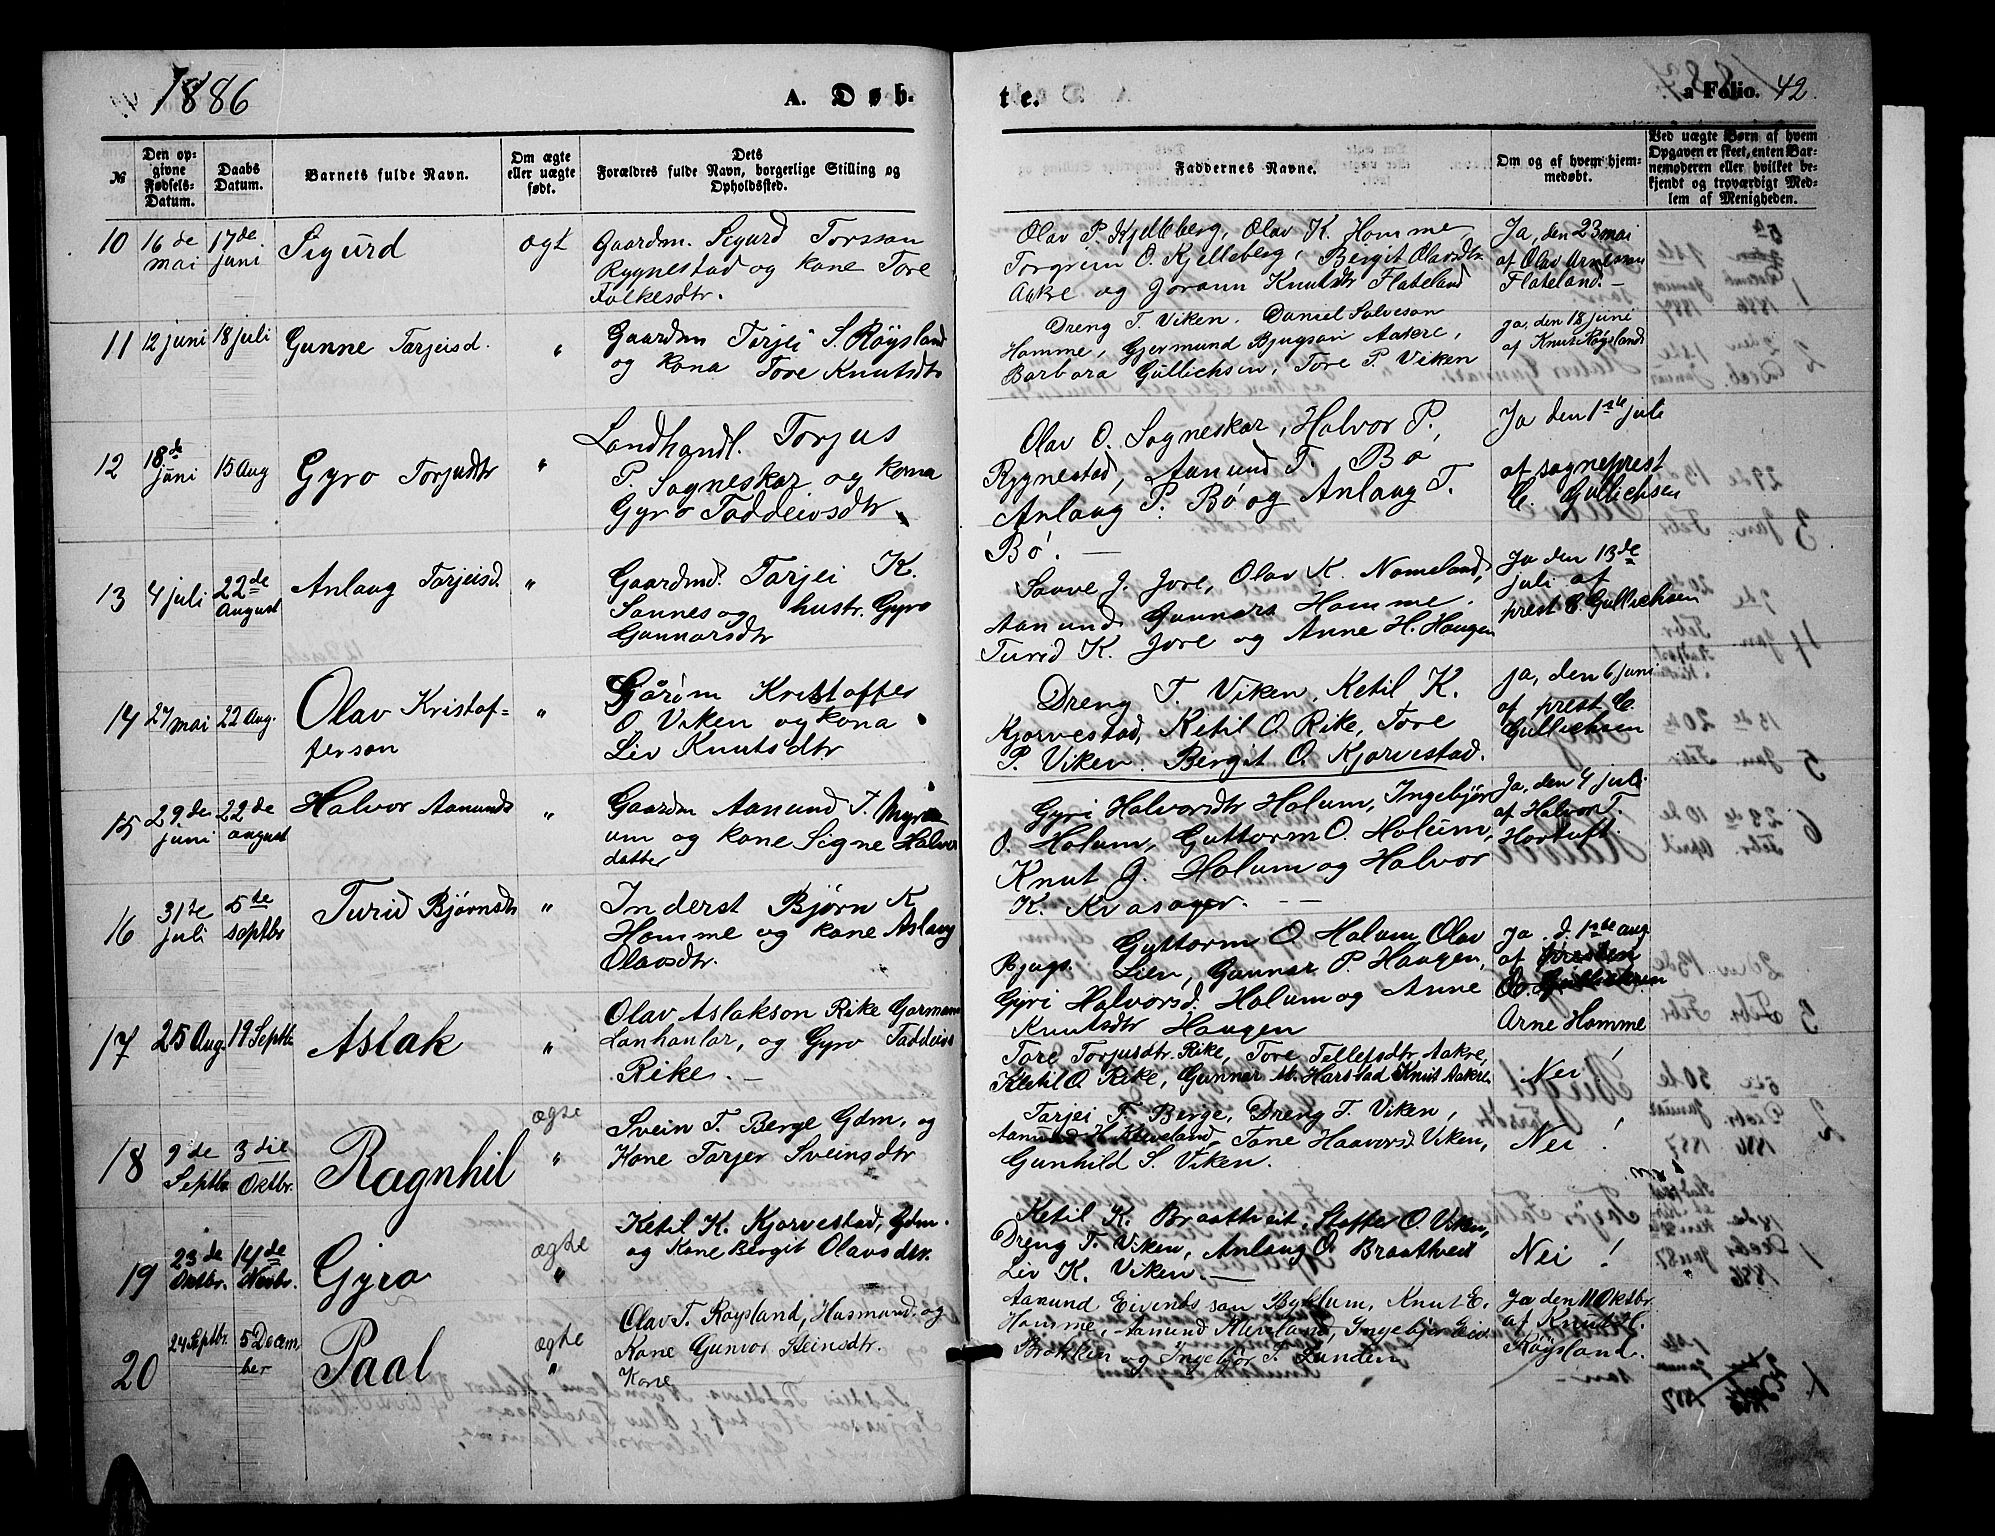 1886
A. Døb-
te.
a Folio. 42.
№
Den op-
givne
Fødsels-
Datum.
Daabs
Datum.
Barnets fulde Navn.
Om ægte
eller uægte
født.
Dets
Forældres fulde Navn, borgerlige Stilling og
Opholdssted.
Faddernes Navne.
Om og af hvem hjem-
medøbt.
Ved uægte Børn af hvem
Opgaven er skeet, enten Bar-
nemoderen eller hvilket be-
kjendt og troværdigt Med-
lem af Menigheden.
10
16 de
mai
17 de
juni
Sigurd
ægt
Gaardm. Sigurd Torsson
Rygnestad og kone Tore
Folkesdtr.
Olav P. Kjelleberg, Olav K. Homme
Torgrim O. Kjelleberg, Bergit Olavsdtr
Aakre og Jorann Knutsdtr Flateland
Ja, den 23 mai
af Olav Arneson
Flateland. —
11
12 juni
18 juli
Gunne Tarjeisd.
"
Gaardm Tarjei S. Røysland
og kona Tore Knutsdtr
Dreng T. Viken. Daniel Salveson
Homme, Gjermund Bjugson Aakre,
Barbora Gullichsen, Tore P. Viken
ja, den 18 juni
af Knut Røysland
12
18 de
juni
15 Aug
Gyro Torjusdtr
"
Landhandl. Torjus
P. Sagneskar og kona
Gyro Taddeivsdtr
Olav O. Sagneskar, Halvor P.
Rygnestad, Aanund T. Bø
Anlaug P. Bø og Anlaug T.
Bø. —
Ja den 1ste juli
af sogneprest
C. Gullichsen
13
4 juli
22 de
August
Anlaug Tarjeisd.
"
Gaardmd. Tarjei K.
Sannes og hustr. Gyro
Gunnarsdtr
Saave J. Jore, Olav K. Nomeland,
Aanund Gunnars Homme.
Turid K. Jore og Anne H. Haugen
Ja den 13 de
juli af
prest C Gullichsen
14
27 mai
22 Aug.
Olav Kristof-
ferson
"
Kristoffer
O. Viken og kona
Liv Knutsdtr
Dreng T. Viken, Ketil K.
Kjorvestad, Ketil O. Rike, Tore
P. Viken. Bergit O. Kjorvestad.
Ja, den 6 juni
af prest C.
Gullichsen
15
29 de
juni
22 de
august
Halvor Aanunds
"
Gaardm Aanund T. Myr
um og kone Signe Halvor
datter
Gyri Halvorsdtr Holum, Ingebjør
O. Holum, Guttorm O. Holum,
Knut J. Holum og Halvor
K. Kvasager. —
Ja, den 4 juli
af Halvor T.
Hortuft.
16
31 te
juli
5 te
septbr
Turid Bjørnsdtr
"
Inderst Bjørn K
Homme og kone Aslaug
Olavsdtr.
Guttorm O Holum Olav
Bjugs. Lien, Gunnar P. Haugen,
Gyri Halvorsd. Holum og Anne
Knutsdtr Haugen
Ja. d. 1ste aug
af presten
C. Gullichsen
Arne Homme
17
25 Aug.
19 Septbr
Aslak
"
Olav Aslakson Rike
og Gyro Taddeivs
Rike. —
Tore Torjusdtr. Rike, Tore Tellefsdtr Aakre,
Ketil O. Rike, Gunnar M. Harstad Knut Aakre.
Nei!
18
9 de
Septbr
3 die
Oktbr.
Ragnhil
ægte
"
Svein T. Berge Gdm, og
Kone Torjer Sveinsdtr
Tarjei F. Berge, Dreng T. Viken,
Aanund H. Kleveland, Tone Haavorsd Viken,
Gunhild S. Viken.
Nei!
19
23 de
Oktbr.
14 de
Novbr.
Gyro
ægte
"
Ketil K. Kjorvestad, Gdm.
og Kone Bergit Olavsdtr.
Ketil K. Braathveit, Stoffer O. Viken,
Dreng T. Viken, Anlaug O. Braathveit
Liv K. Viken. —
Nei!
20
24 Septbr.
5 Decem
ber
Paal
ægte
"
Olav T. Røysland, Husmand. og
Kone Gunvor Steinsdtr.
Kone
Aanund Eivends son Byklum, Knut E.
Homme, Aanund Kleveland, Ingebjør Eiv
Brokken og Ingebjør T. Lunden
Ja den 11 Oktbr.
af Knut H.
Røysland.